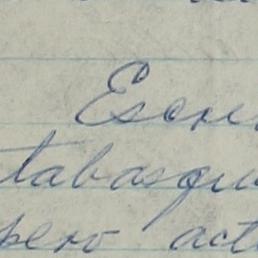 Escri
tabasqu
pero act